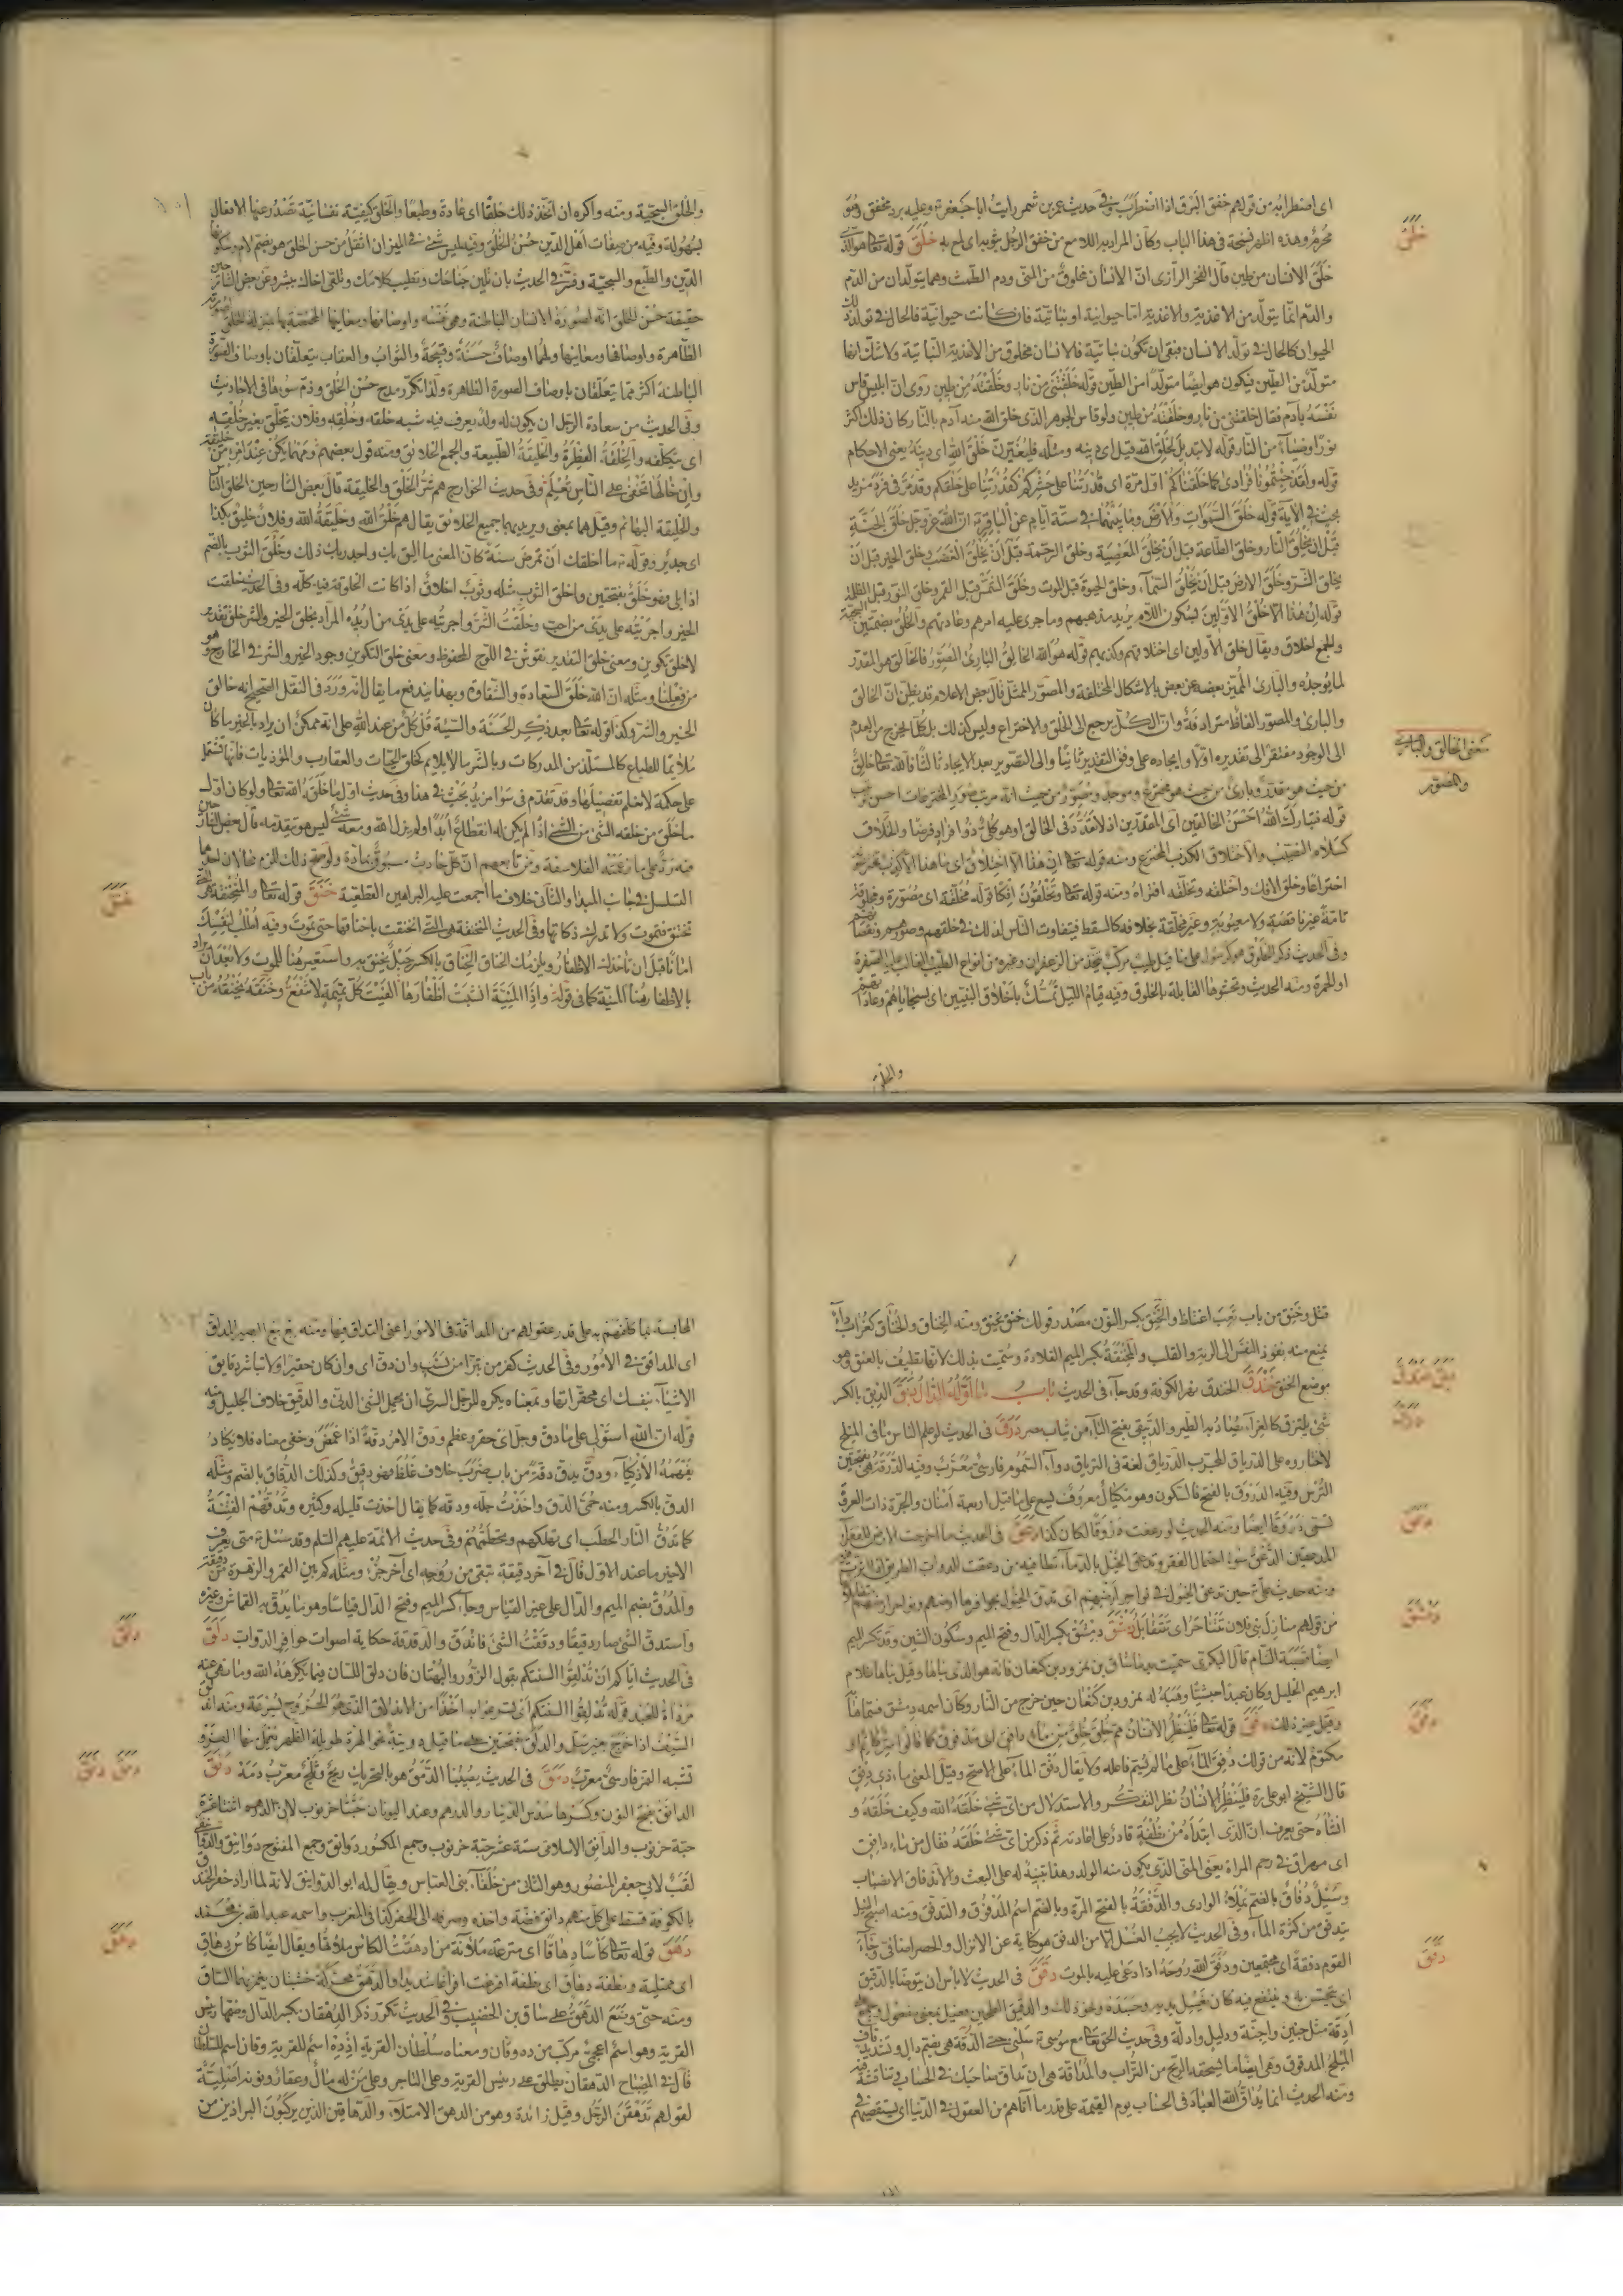 اى اضطرابه من قولهم خفق البرق اذا اضطرب وفى حديث عمر بن شمر رايت ابا جعفر ع وعليه برد مخفق وهو
محرم وهذه اظهر نسخة فى هذا الباب وكان المراد به اللامع من خفق الرجل بثوبه اى لمع به خَلَقَ قوله تعالى هو الذى
خلق الانسان من طين قال الفخر الرازى ان الانسان مخلوق من المنى ودم الطمث وهما يتولدان من الدم
والدم انما يتولد من الاغذية والاغذية اما حيوانية او نباتية فان كانت حيوانية فالحال فى تولد ذلك
الحيوان كالحال فى تولد الانسان فبقى ان تكون نباتية فالانسان مخلوق من الاغذية النباتية ولا شك انها
متولدة من الطين فيكون هو ايضا متولدا من الطين قوله خلقتنى من نار وخلقته من طين روى ان ابليس قاس
نفسه بآدم فقال خلقتنى من نار وخلقته من طين ولو قاس الجوهر الذى خلق الله منه آدم بالنار كان ذلك اكثر
نورا وضياء من النار قوله لا تبديل لخلق الله قيل اى دينه ومثله فليغيرن خلق الله اى دينه يعنى الاحكام
قوله ولقد جئتمونا فرادى كما خلقناكم اول مرة اى قدرتنا على حشركم كقدرتنا على خلقكم وقد مر فى فرد مزيد
بحث فى الآية قوله خلق السموات والارض وما بينهما فى ستة ايام عن الباقر ع ان الله عز وجل خلق الجنة
قبل ان يخلق النار وخلق الطاعة قبل ان يخلق المعصية وخلق الرحمة قبل ان يخلق الغضب وخلق الخير قبل ان
يخلق الشر وخلق الارض قبل ان يخلق السماء وخلق الحيوة قبل الموت وخلق الشمس قبل القمر وخلق النور قبل الظلمة
قوله ان هذا الا خلق الاولين بسكون اللام يريد مذهبهم وما جرى عليه امرهم وعادتهم والخلق بضمتين السجية
والجمع اخلاق ويقال خلق الاولين اى اختلاقهم وكذبهم قوله هو الله الخالق البارئ المصور فالخالق هو المقدر
لما يوجده والبارئ المميز بعضه عن بعض بالاشكال المختلفة والمصور الممثل قال بعض الاعلام قد يظن ان الخالق
والبارئ والمصور الفاظ مترادفة وان الكل يرجع الى الخلق والاختراع وليس كذلك بل كلما يخرج من العدم
الى الوجود مفتقر الى تقديره اولا وايجاده على وفق التقدير ثانيا والى التصوير بعد الايجاد ثالثا فالله تعالى خالق
من حيث هو مقدر وبارئ من حيث هو مخترع وموجد ومصور من حيث انه مرتب صور المخترعات احسن ترتيب
قوله فتبارك الله احسن الخالقين اى المقدرين اذ لا تعدد فى الخالق
كسلام النصيب والاختلاق الكذب المخترع ومنه قوله تعالى ان هذا الا اختلاق اى ما هذا الا كذب
وخلق الافك واختلقه وتخلقه افتراه ومنه قوله تعالى وتخلقون افكا قوله مخلقة اى مصورة
تامة غير ناقصة ولا معيوبة وغير مخلقة بخلافه كالسقط فيتفاوت الناس لذلك فى خلقهم وصورهم
وفى الحديث ذكر الخلوق هو كرسول على ما قيل طيب مركب يتخذ من الزعفران وغيره من انواع الطيب والغالب عليه الصفرة
او الحمرة ومنه الحديث وتحشوها القابلة بالخلوق وفيه قيام الليل تمسك باخلاق النبيين اى بسجاياهم
والخلق
خَلَقَ
معنى الخالق والبارى
والمصور
والخلق السجية ومنه واكره ان اتخذ ذلك خلقا اى عادة وطبعا والخلق كيفية نفسانية تصدر عنها الافعال
بسهولة وفيه من صفات اهل الدين حسن الخلق وفيه ليس شئ فى الميزان اثقل من حسن الخلق هو بضم لام وسكونها
الدين والطبع والسجية وفسر فى الحديث بان تلين جناحك وتطيب كلامك وتلقى اخاك ببشر وعن بعض الشارحين
حقيقة حسن الخلق انه لصورة الانسان الباطنة وهى نفسه واوصافها ومعانيها المختصة بها بمنزلة الخلق
الظاهرة واوصافها ومعانيها ولهما اوصاف حسنة وقبيحة والثواب والعقاب يتعلقان باوصاف الصورة
الباطنة اكثر مما يتعلقان باوصاف الصورة الظاهرة ولذا تكرر مدح حسن الخلق وذم سوئها فى الاحاديث
وفى الحديث من سعادة الرجل ان يكون له ولد يعرف فيه شبه خلقه وخلقه وفلان يتخلق بغير خلقه
اى يتكلفه والخلقة الفطرة والخليقة الطبيعة والجمع الخلائق ومنه قول بعضهم ومهما يكن عند امرئ من خليقة
وان خالها تخفى على الناس تعلم وفى حديث الخوارج هم شر الخلق والخليقة قال بعض الشارحين الخلق الناس
والخليقة البهائم وقيل هما بمعنى ويريد بهما جميع الخلائق يقال هم خلق الله وخليقة الله وفلان خليق بكذا
اى جدير وقوله ما اخلقك ان تمرض سنة كان المعنى ما اليق بك واجدر بك ذلك وخلق الثوب بالضم
اذا بلى فهو خلق بفتحتين واخلق الثوب مثله وثوب اخلاق اذا كانت الخلوقة فيه كله وفى الحديث خلقت
الخير واجريته على يدى من احب وخلقت الشر واجريته على يدى من اريده المراد بخلق الخير والشر خلق تقدير
لا خلق تكوين ومعنى خلق التقدير نقوش فى اللوح المحفوظ ومعنى خلق التكوين وجود الخير والشر فى الخارج وهو
من فعلنا ومثله ان الله خلق السعادة والشقاوة وبهذا يندفع ما يقال انه ورد فى النقل الصحيح انه خالق
الخير والشر وكذا قوله تعالى بعد ذكر الحسنة والسيئة قل كل من عند الله على انه ممكن ان يراد بالخير ما كان
ملائما للطباع كالمستلذ من المدركات وبالشر ما لا يلائم كخلق الحيات والعقارب والمؤذيات فانها تشتمل
على حكمة لا نعلم تفصيلها وقد تقدم فى سوا مزيد بحث فى هذا وفى حديث اول ما خلق الله تعالى ولو كان اول
ما خلق من خلقه الشئ من الشئ اذا لم يكن له انقطاع ابدا ولم يزل الله ومعه شئ ليس هو يتقدمه قال بعض الشارحين
فيه رد على ما زعمته الفلاسفة ومن تابعهم ان كل حادث مسبوق بمادة ولو صح ذلك للزم محالان احدهما
التسلسل فى جانب المبدا والثانى خلاف ما اجمعت عليه البراهين القطعية خَنَقَ قوله تعالى والمنخنقة هى التى
تختنق فتموت ولا تدرك ذكاتها وفى الحديث المنخنقة هى التى انخنقت باخناقها حتى تموت وفيه اطلب لنفسك
امانا قبل ان تأخذك الاظفار ويلزمك الخناق الخناق بالكسر حبل يخنق به واستعير هنا للموت ولا بعد ان يراد
بالاظفار هنا المنية كما فى قوله واذا المنية انشبت اظفارها الفيت كل تميمة لا تنفع وخنقه يخنقه من باب
خَنَقَ
قتل وخنق من باب تعب اغتاظ والخنق بكسر النون مصدر قولك خنق يخنق ومنه الخناق والخناق كغراب داء
يمنع منه نفوذ النفس الى الرية والقلب والمخنقة بكسر الميم القلادة وسميت بذلك لانها تطيف بالعنق وهو
موضع الخنق خَنْدَقَ الخندق نهر الكوفة وقد جاء فى الحديث باب ما اوله الدال دَبِقَ الدبق بالكسر
شئ يلتزق كالغراء يصاد به الطير والدبيقى بفتح الباء من ثياب مصر دَرَقَ فى الحديث لو علم الناس ما فى البلح
لاختاروه على الدرياق المجرب الدرياق لغة فى الترياق دواء السموم فارسى معرب وفيه الدرقة هى بفتحتين
الترس وفيه الدورق بالفتح فالسكون وهو مكيال معروف يسع على ما قيل اربعة امنان والجرة ذات العروة
تسمى دورقا ايضا ومنه الحديث لو رعفت دورقا لكان كذا دَعَقَ
المدعقين الدعق سوء احتمال الفقر
ومنه حديث على ع حين تدعق الخيول فى نواحر ارضهم اى تدق الخيول بحوافرها ارضهم ونواحر ارضهم متقابلها
من قولهم منازل بنى فلان تتناحر اى تتقابل دِمَشْقَ دمشق بكسر الدال وفتح الميم وسكون الشين وقد تكسر الميم
ايضا قصبة الشام قال البكرى سميت بدماشاق بن نمرود بن كنعان فانه هو الذى بناها وقيل بناها غلام
ابرهيم الخليل وكان عبدا حبشيا وهبه له نمرود بن كنعان حين خرج من النار وكان اسمه دمشق فسماها
وقيل غير ذلك دَفَقَ قوله تعالى فلينظر الانسان مم خلق خلق من ماء دافق اى مدفوق كما قالوا سر كاتم اى
مكتوم لانه من قولك دفق الماء على ما لم يسم فاعله ولا يقال دفق الماء على الاصح وقيل المعنى ماء ذى دفق
قال الشيخ ابو على ره فلينظر الانسان نظر التفكر والاستدلال من اى شئ خلقه الله وكيف خلقه و
انشاه حتى يعرف ان الذى ابتداه من نطفة قادر على اعادته ثم ذكر من اى شئ خلقه فقال من ماء دافق
اى مهراق فى رحم المراة يعنى المنى الذى يكون منه الولد وهذا تنبيه له على البعث والاندفاق الانصباب
وسيل دفاق بالضم يملاء الوادى والدفقة بالفتح المرة وبالضم اسم المدفوق والتدفق ومنه
يتدفق من كثرة الماء وفى الحديث لا يجب الغسل الا من الدفق هو كناية عن الانزال والحصر اضافى وجاء
القوم دفقة اى مجتمعين ودفق الله روحه اذا دعى عليه بالموت دَقَقَ فى الحديث لا باس ان يتوضا بالدقيق
اى يتمسح به وينتفع فيه كان يغسل يديه وجسده ونحو ذلك والدقيق الطحين فعيل بمعنى مفعول
ادقة مثل جنين واجنة ودليل وادلة وفى حديث الحق تعالى مع موسى ع سلنى حتى الدقة هى بضم دال وتشديد قاف
الملح المدقوق وهى ايضا ما تسحقه الريح من التراب والمداقة هى ان تداق صاحبك فى الحساب تناقشه
ومنه الحديث انما يداق الله العباد فى الحساب يوم القيمة على قدر ما آتاهم من العقول فى الدنيا
دَعَقَ
دِمَشْقَ
دَفَقَ
دَقَقَ
المحاسبة بما كلفهم به على قدر عقولهم من المداقة فى الامور اعنى التداق فيها ومنه
اى المداقق فى الامور وفى الحديث كفر من تبرا من نسب وان دق اى وان كان حقيرا ولا تباشر دقايق
الاشياء بنفسك اى محقراتها وبمعناه يكره للرجل السرى ان يحمل الشئ الدنى والدقيق خلاف الجليل ومنه
قوله ان الله استولى على ما دق وجل اى حقر وعظم ودق الامر دقة اذا غمض وخفى معناه فلا يكاد
يفهمه الاذكياء ودق يدق دقة من باب ضرب خلاف غلظ فهو دقيق وكذلك الدقاق بالضم ومثله
الدق بالكسر ومنه حمى الدق واخذت جله ودقه كما يقال اخذت قليله وكثيره وتدقهم الفتنة
كما تدق النار الحطب اى تهلكهم وتحطمهم وفى حديث الائمة عليهم السلم وقد سئل متى يعرف
الاخير ما عند الاول قال فى آخر دقيقة تبقى من روحه اى آخر جزء ومثله كم بين القمر والزهرة من دقيقة
والمدق بضم الميم والدال على غير القياس وجاء كسر الميم وفتح الدال قياسا وهو ما يدق به القماش وغيره
واستدق الشئ صار دقيقا ودققت الشئ فاندق والدقدقة حكاية اصوات حوافر الدواب دَلَقَ
فى الحديث اياكم ان تذلقوا السنتكم بقول الزور والبهتان فان دلق اللسان فيما يكرهه الله وما نهى عنه
مرداة للعبد قوله تدلقوا السنتكم اى تسرعوا به اخذا من الاندلاق الذى هو الخروج بسرعة ومنه اندلق
السيف اذا خرج من غير سل والدلق بفتحتين على ما قيل دويبة نحو الهرة طويلة الظهر يعمل منها الفرو
تشبه النمر فارسى معرب دَمَقَ فى الحديث يصيبنا الدمق هو بالتحريك ريح وثلج معرب دمه دَنَقَ
الدانق بفتح النون وكسرها سدس الدينار والدرهم وعند اليونان حبتا خرنوب لان الدرهم اثنتا عشرة
حبة خرنوب والدانق الاسلامى ستة عشر حبة خرنوب وجمع المكسور دوانق وجمع المفتوح دوانيق والدوانقى
لقب لابى جعفر المنصور وهو الثانى من خلفاء بنى العباس ويقال له ابو الدوانيق لانه لما اراد حفر الخندق
بالكوفة قسط على كل منهم دانق فضة واخذه وصرفه الى الحفر كذا فى المغرب واسمه عبد الله بن محمد
دَهَقَ قوله تعالى كاسا دهاقا اى مترعة ملآنة من ادهقت الكاس ملاتها ويقال ايضا كاس دهاق
اى ممتلية ونطفة دهاق اى نطفة افرغت افراغا شديدا والدهق محركة خشبتان يغمز بهما الساق
ومنه حتى وضع الدهق على ساق بن الخضيب وفى الحديث تكرر ذكر الدهقان بكسر الدال وضمها رئيس
القرية وهو اسم اعجمى مركب من ده وقان ومعناه سلطان القرية اذ ده اسم للقرية وقان اسم السلطان
قال فى المصباح الدهقان يطلق على رئيس القرية وعلى التاجر وعلى من له مال وعقار ونونه اصلية
لقولهم تدهقن الرجل وقيل زائدة وهو من الدهق الامتلاء والدهاقين الذين يركبون البراذين من
دَلَقَ
دَمَقَ دَنَقَ
دَهَقَ